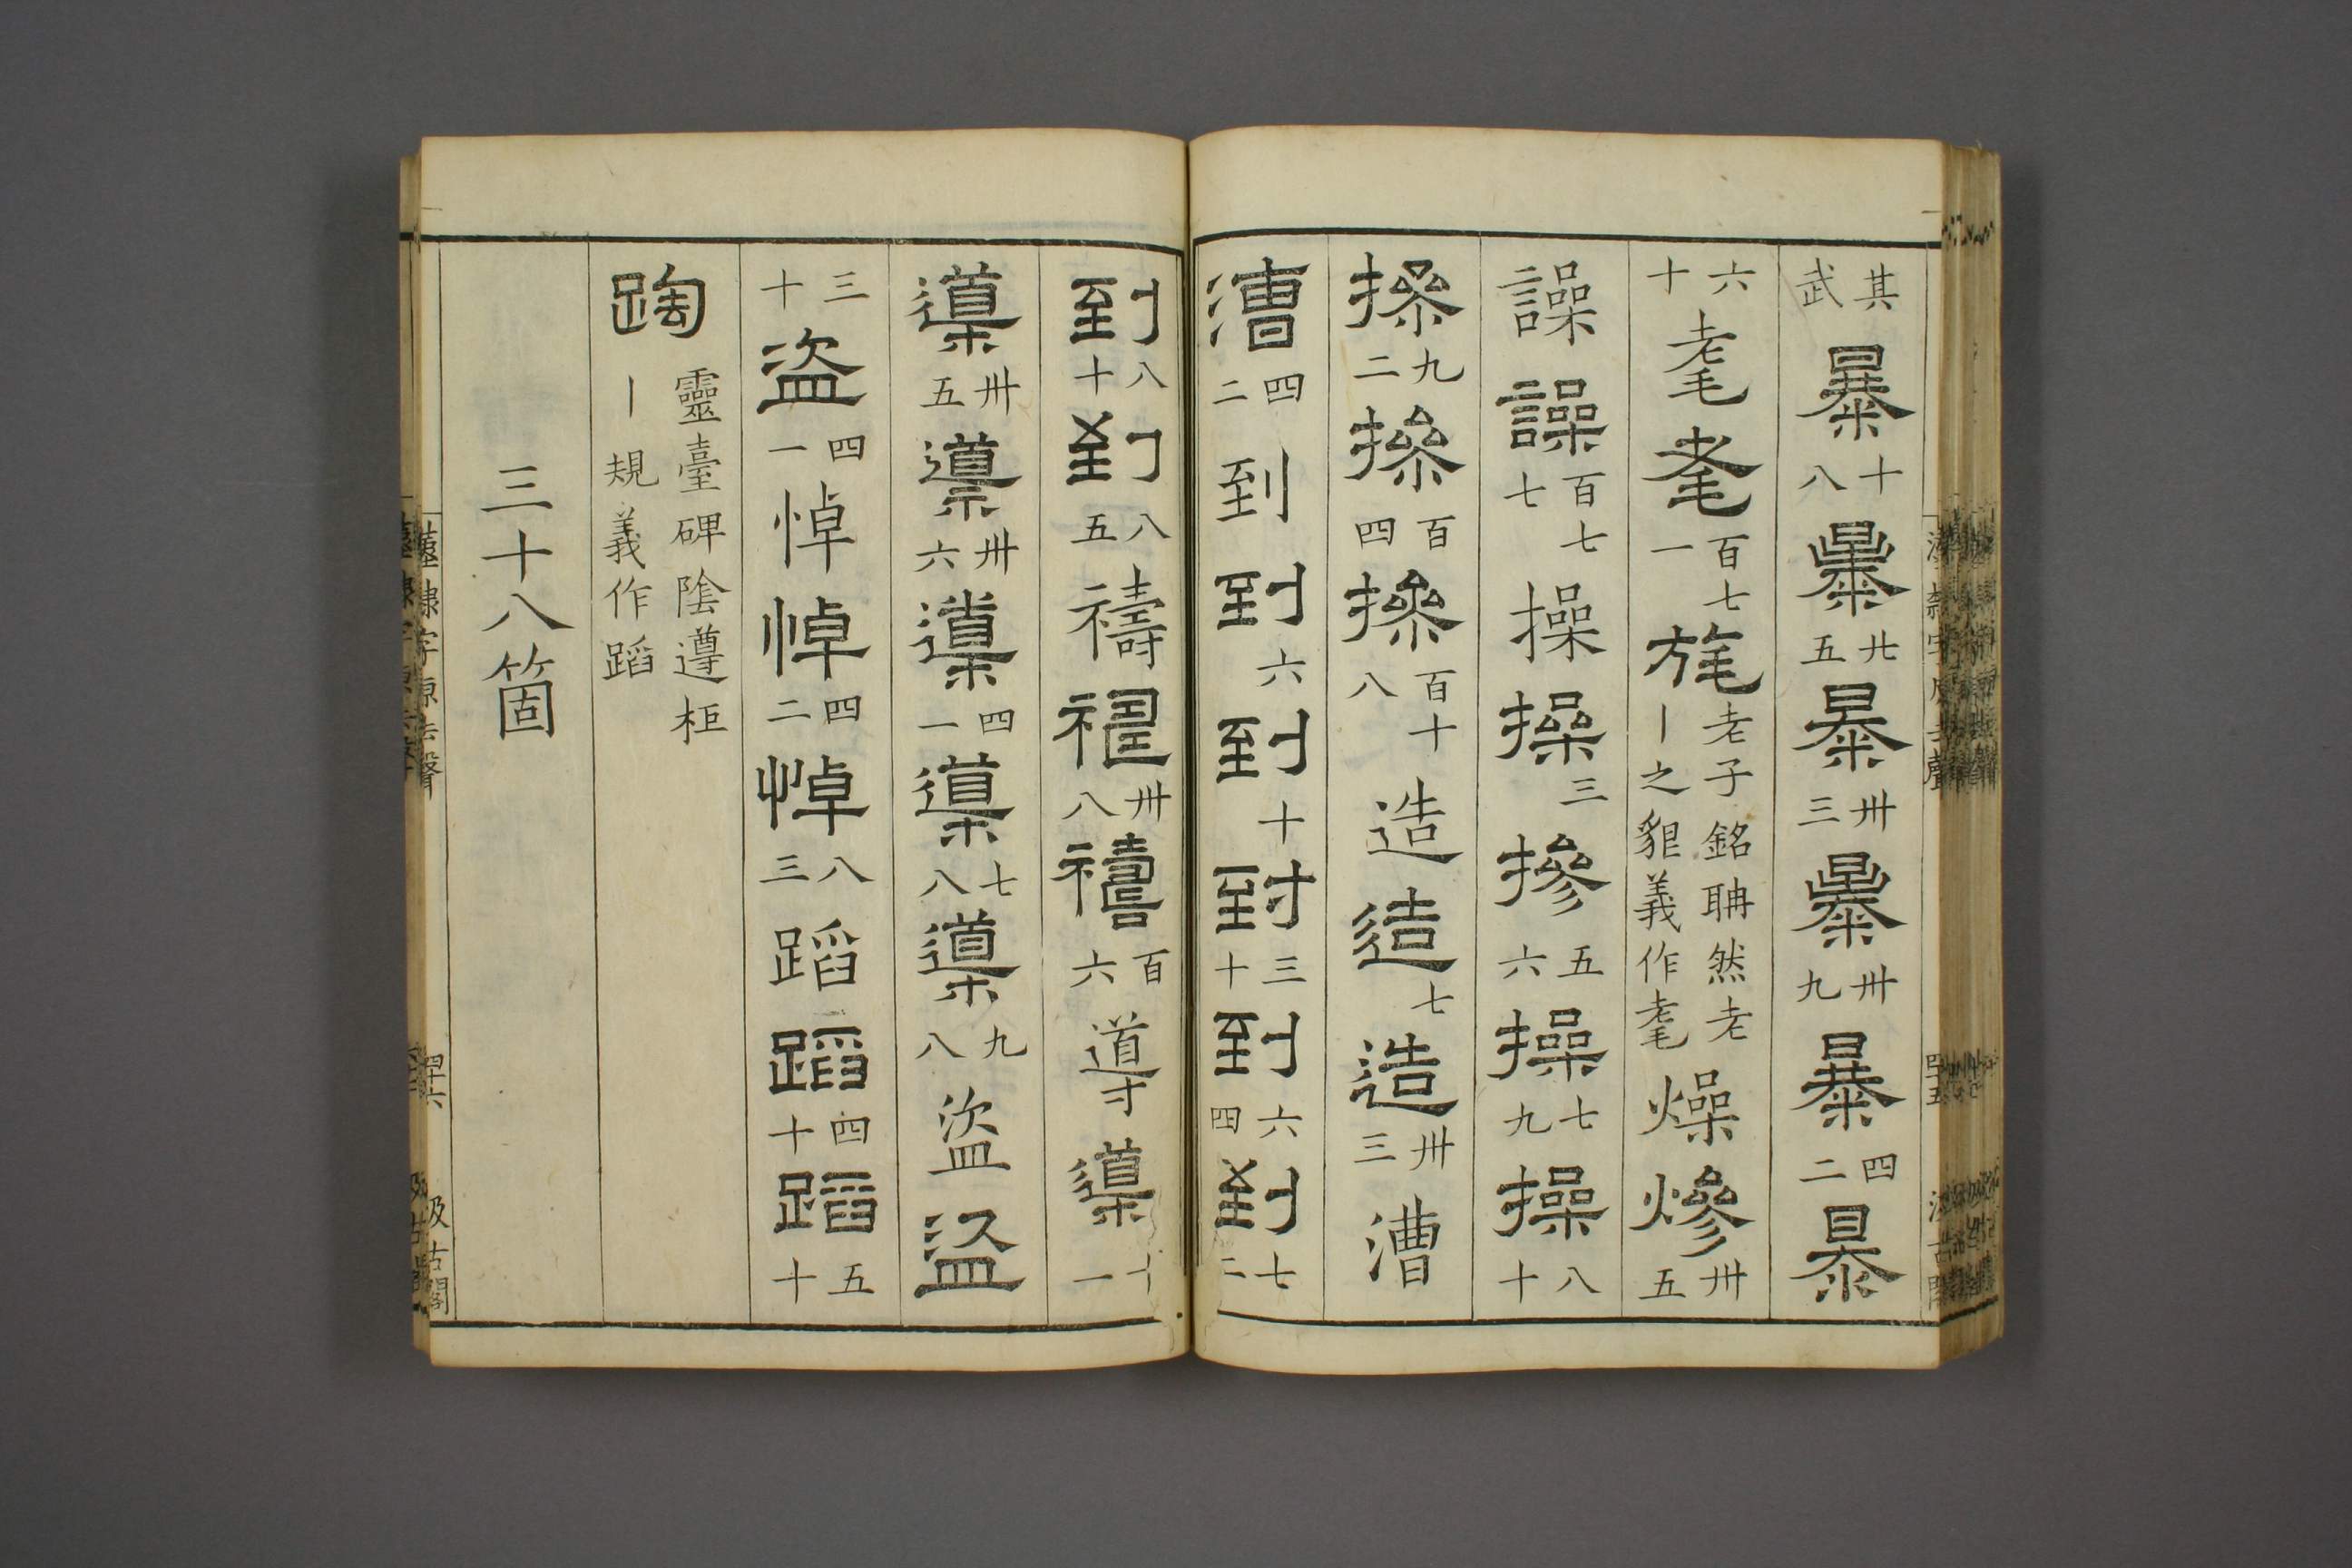 其武暴十八暴廿五暴卅三暴卅九暴四二暴
六十耄耄百七一旄老子銘聃然老丨之貌義作耄燥燥卅五
譟譟百七七操操三操五六操七九操八十
操九二操百四操百十八造造七造卅三漕
漕四二到到六到十到三十到六四到七二
到八十到八五禱禱卅八禱百六導導十一
導卅五導卅六導四一導七八導九八盜盜
三十盜四一悼悼四二悼八三蹈蹈四十蹈五十
蹈靈臺碑陰遵柜丨規義作蹈
三十八箇
漢隸字原去聲 四十五 汲古閣
漢隸字原去聲 四十六 汲古閣